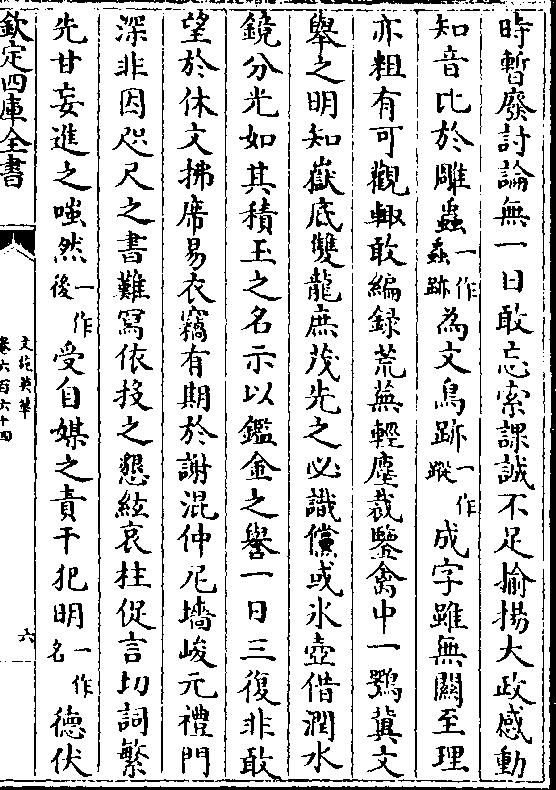 時暫廢討論無一日敢忘索課誠不足揄揚大政感動
知音比於雕蟲一作蟊跡為文鳥跡一作蹤成字雖無關至理
亦粗有可觀輙敢編録荒蕪輕塵裁鑒禽中一鶚冀文
舉之明知嶽底雙龍庶茂先之必識儻或氷壺借潤水
鏡分光如其積玉之名示以鑑金之譽一日三復非敢
望於休文拂席易衣竊有期於謝混仲尼墻峻元禮門
深非因咫尺之書難寫依投之懇絃哀柱促言切詞繁
先甘妄進之嗤然一作後受自媒之責干犯明一作名德伏
欽定四庫全書
文苑英華
卷六百六十四
六